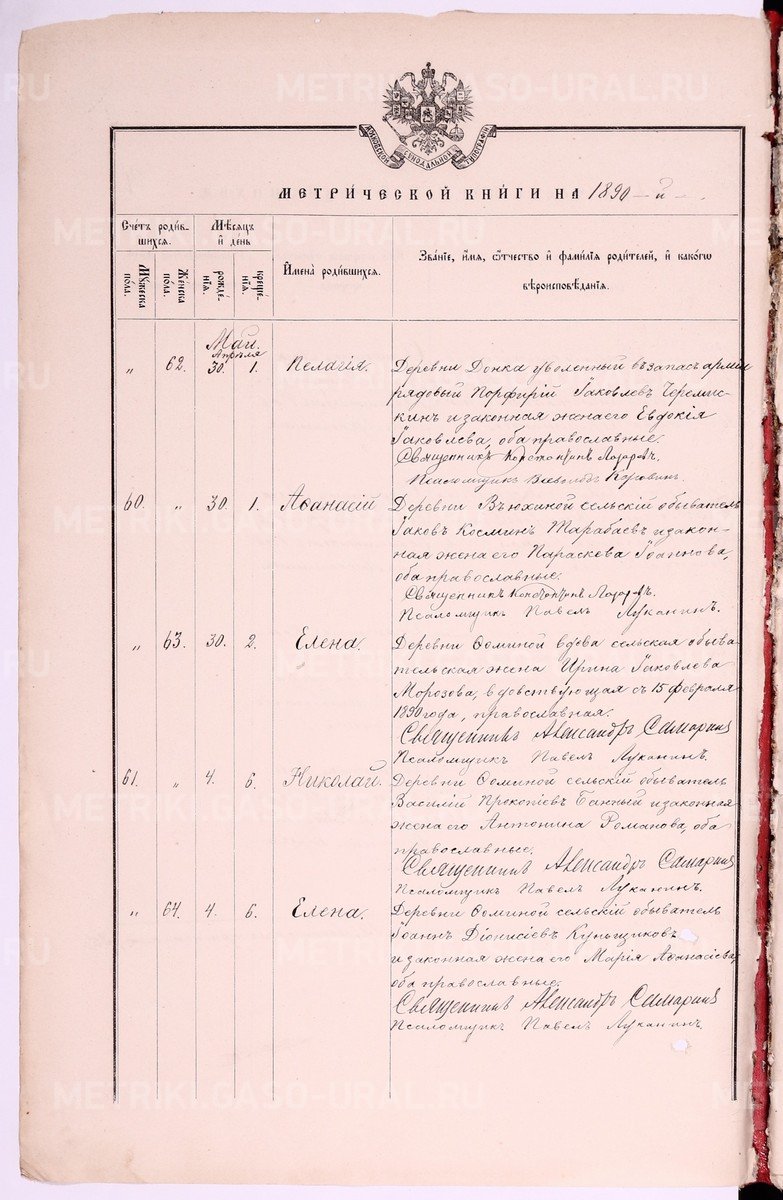 МОСКОВСКОЙ СѴНОДАЛЬНОЙ ТИПОГРАФІИ
МЕТРИ́ЧЕСКОЙ КНИ́ГИ НА 1890 – й –
Сче́тъ роди́в-
шихся.
Мѣ́сяцъ
и҆ де́нь
Мꙋ́жеска
по́ла.
Же́нска
по́ла.
рожде́-
нїѧ.
креще́-
нїѧ.
И҆мена̀ роди́вшихсѧ.
Зва́нїе, и҆́мѧ, ѻ҆́тчество и҆ фами́лїѧ роди́телей, и҆ како́гѡ
вѣроисповѣ́данїѧ.
Май.
Апрѣля
„ 62. 30. 1. Пелагія. Деревни Донка уволенный въ запасъ арміи
рядовый Порфирій Іаковлевъ Черемис-
кинъ и законная жена его Евдокія
Іаковлева, оба православные.
Священникъ Константинъ Лазаревъ.
Псаломщикъ Всеволодъ Коровинъ.
60. „ 30. 1. Аѳанасій Деревни Вьюхиной сельскій обыватель
Іаковъ Косминъ Тарабаевъ и закон-
ная жена его Параскева Іоаннова,
оба православные.
Священникъ Константинъ Лазаревъ.
Псаломщикъ Павелъ Луканинъ.
„ 63. 30. 2. Елена. Деревни Ѳоминой вдова сельская обыва-
тельская жена Ирина Іаковлева
Морозова, вдовствующая съ 15 февраля
1890 года, православная.
Священникъ Александръ Самаринъ
Псаломщикъ Павелъ Луканинъ.
61. „ 4. 6. Николай. Деревни Ѳоминой сельскій обыватель
Василій Прокопіевъ Банный и законная
жена его Антонина Романова, оба
православные.
Священникъ Александръ Самаринъ
Псаломщикъ Павелъ Луканинъ.
„ 64. 4. 6. Елена. Деревни Ѳоминой сельскій обыватель
Іоаннъ Діонисіевъ Куньщиковъ
и законная жена его Марія Аѳанасіева,
оба православные.
Священникъ Александръ Самаринъ
Псаломщикъ Павелъ Луканинъ.
METRIKI.GASO-URAL.RU